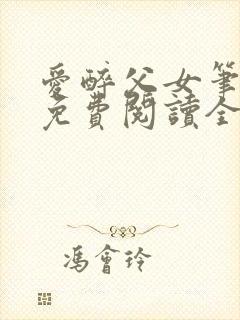 愛醉父女筆
免費閱讀全
馮會玲